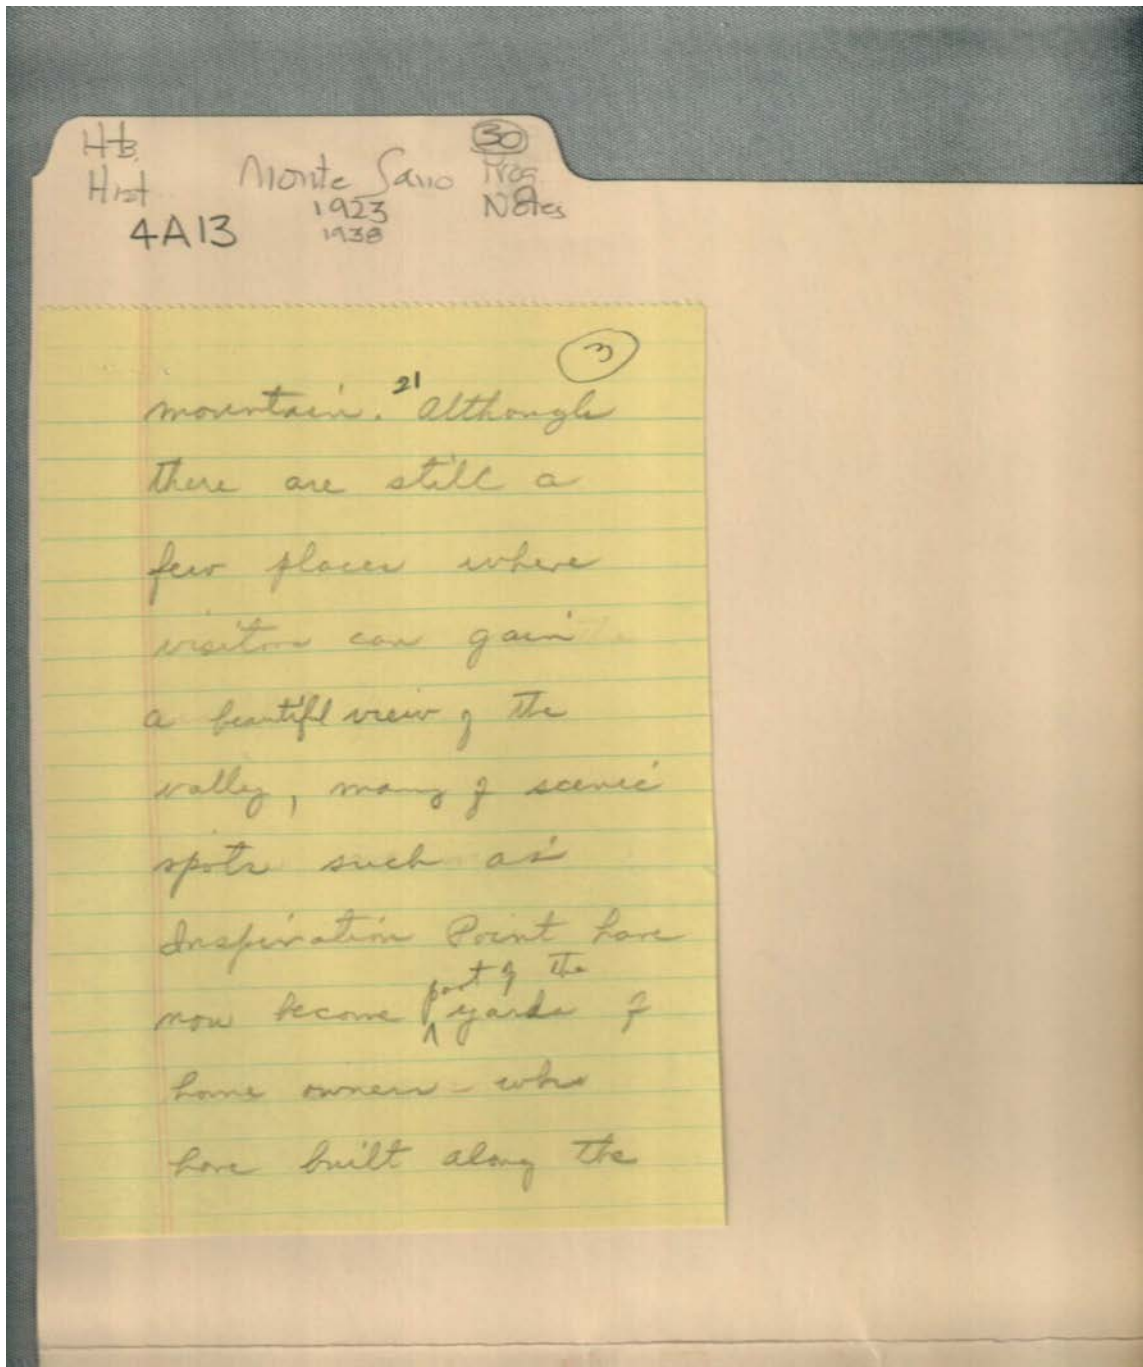 Htb.
Hist
4A13
Monte Sano
1923
1938
30
Prog
Notes
3
mountain. 21 Although
there are still a
few places where
visitors can gain
a beautiful view of the
valley, many of scenic
spots such as
Inspiration Point have
part of the
now become ^ yards of
home owners who
have built along the